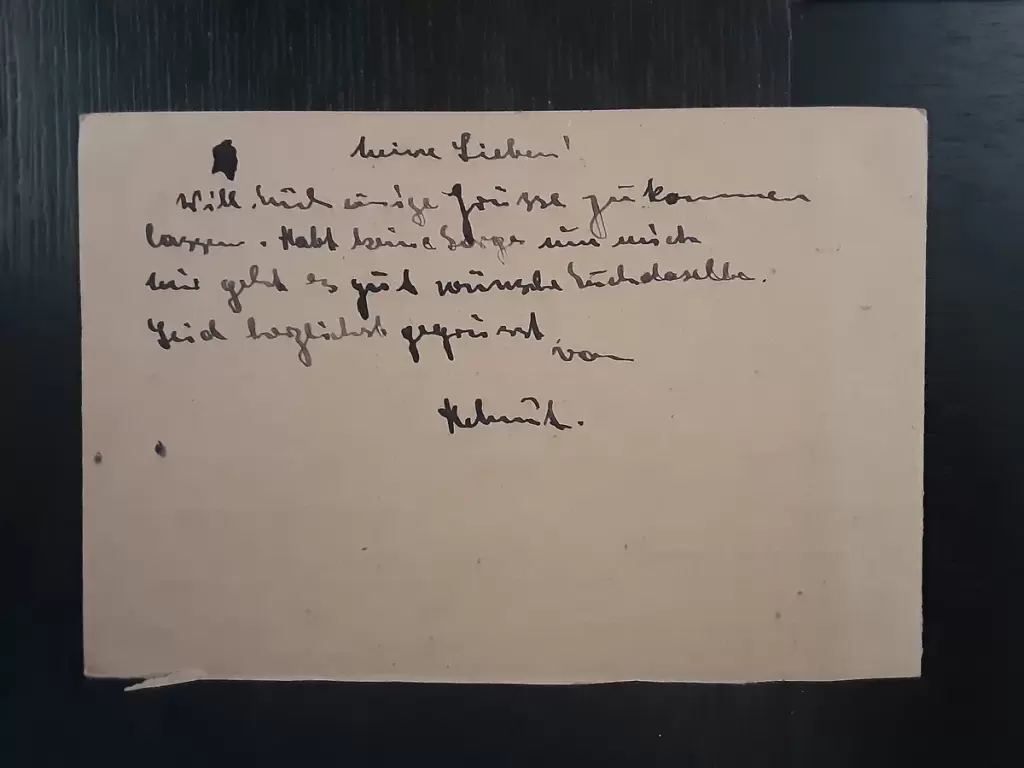 Meine Lieben!
Will Euch einige Grüsse zukommen
lassen. Habt keine Sorge um mich
mir geht es gut wünsche Euch dasselbe.
Seid herzlichst gegrüsst
von
Helmut.